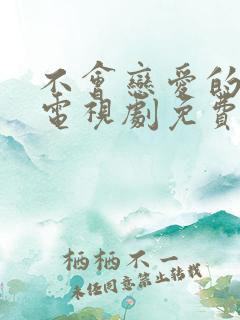 不會戀愛的
電視劇免費
栖栖不一
未经同意禁止转载